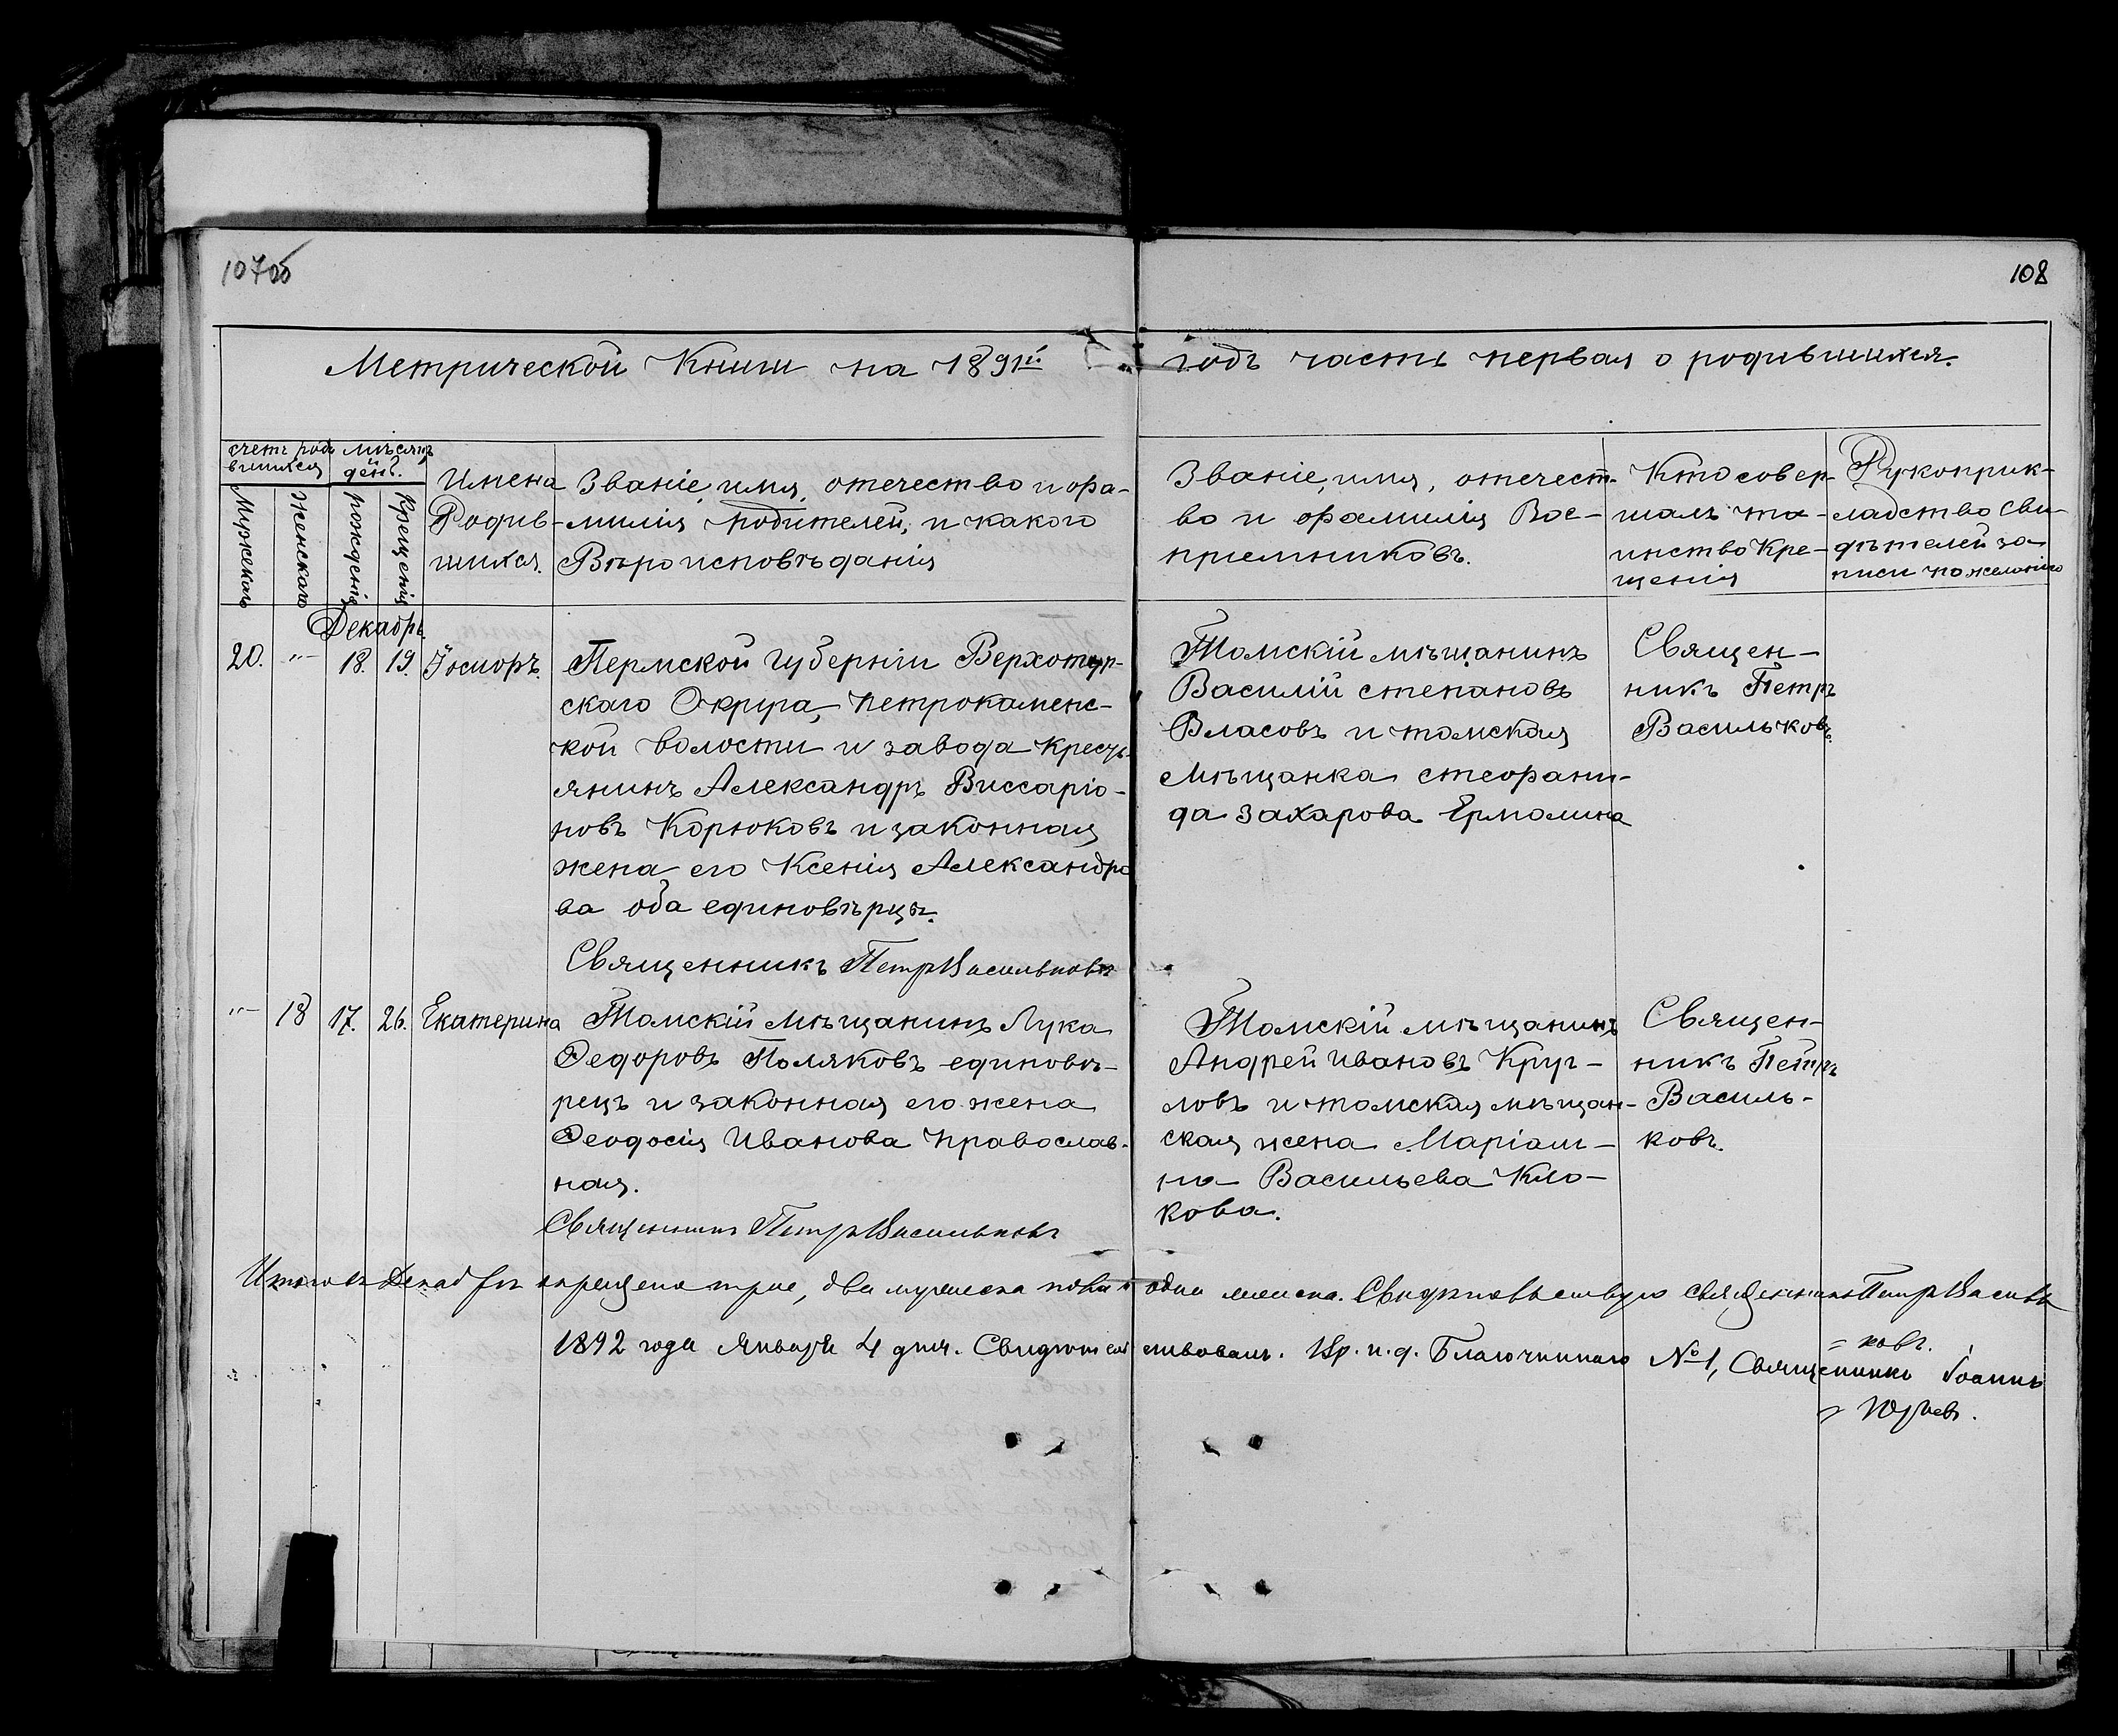 107об
108
Метрической Книги на 1891й годъ часть первая о родившихся.
счетъ роди
вшихся
мѣсяцъ
день.
Мужскаго
Женскаго
рожденія
Крещенія
Имена
Родив-
шихся.
Званіе, имя, отечество и фа-
милія родителей, и какого
Вѣроисповѣданія
Званіе, имя, отечест-
во и фамилія Вос-
пріемниковъ.
Кто совер-
шалъ та-
инство Кре-
щенія
Рукоприк-
ладство сви-
дѣтелей за-
писи по желанію
Декабрь.
20. "- 18. 19.
Пермской губерніи Верхотур-
скаго Округа, Петрокаменс-
кой волости и завода Кресть-
янинъ Александръ Виссаріо-
новъ Корюковъ и законная
жена его Ксенія Александро
ва оба единовѣрцы.
Священникъ Петръ Васильковъ
Томскій мѣщанинъ
Василій степановъ
Власовъ и томская
мѣщанка стефани-
да захарова Ермолина
Священ-
никъ Петръ
Васильковъ.
"- 18 17. 26. Екатерина
Томскій мѣщанинъ Лука
Ѳедоровъ Поляковъ единовѣ-
рецъ и законная его жена
Ѳеодосія Иванова православ-
ная.
Священникъ Петръ Васильковъ
Томскій мѣщанинъ
Андрей Ивановъ Круг-
ловъ и томская мѣщан-
ская жена Маріам-
на Васильева Кло-
кова.
Священ-
никъ Петръ
Василь-
ковъ.
Итого въ Декабрѣ крещено трое, два мужеска пола и одна женска. Свидѣтельствую священникъ Петръ Василь
= ковъ.
1892 года Января 4 дня. Свидѣтельствовалъ. Вр. и. д. Благочиннаго №1, Священникъ Іоаннъ
= Юрьевъ.